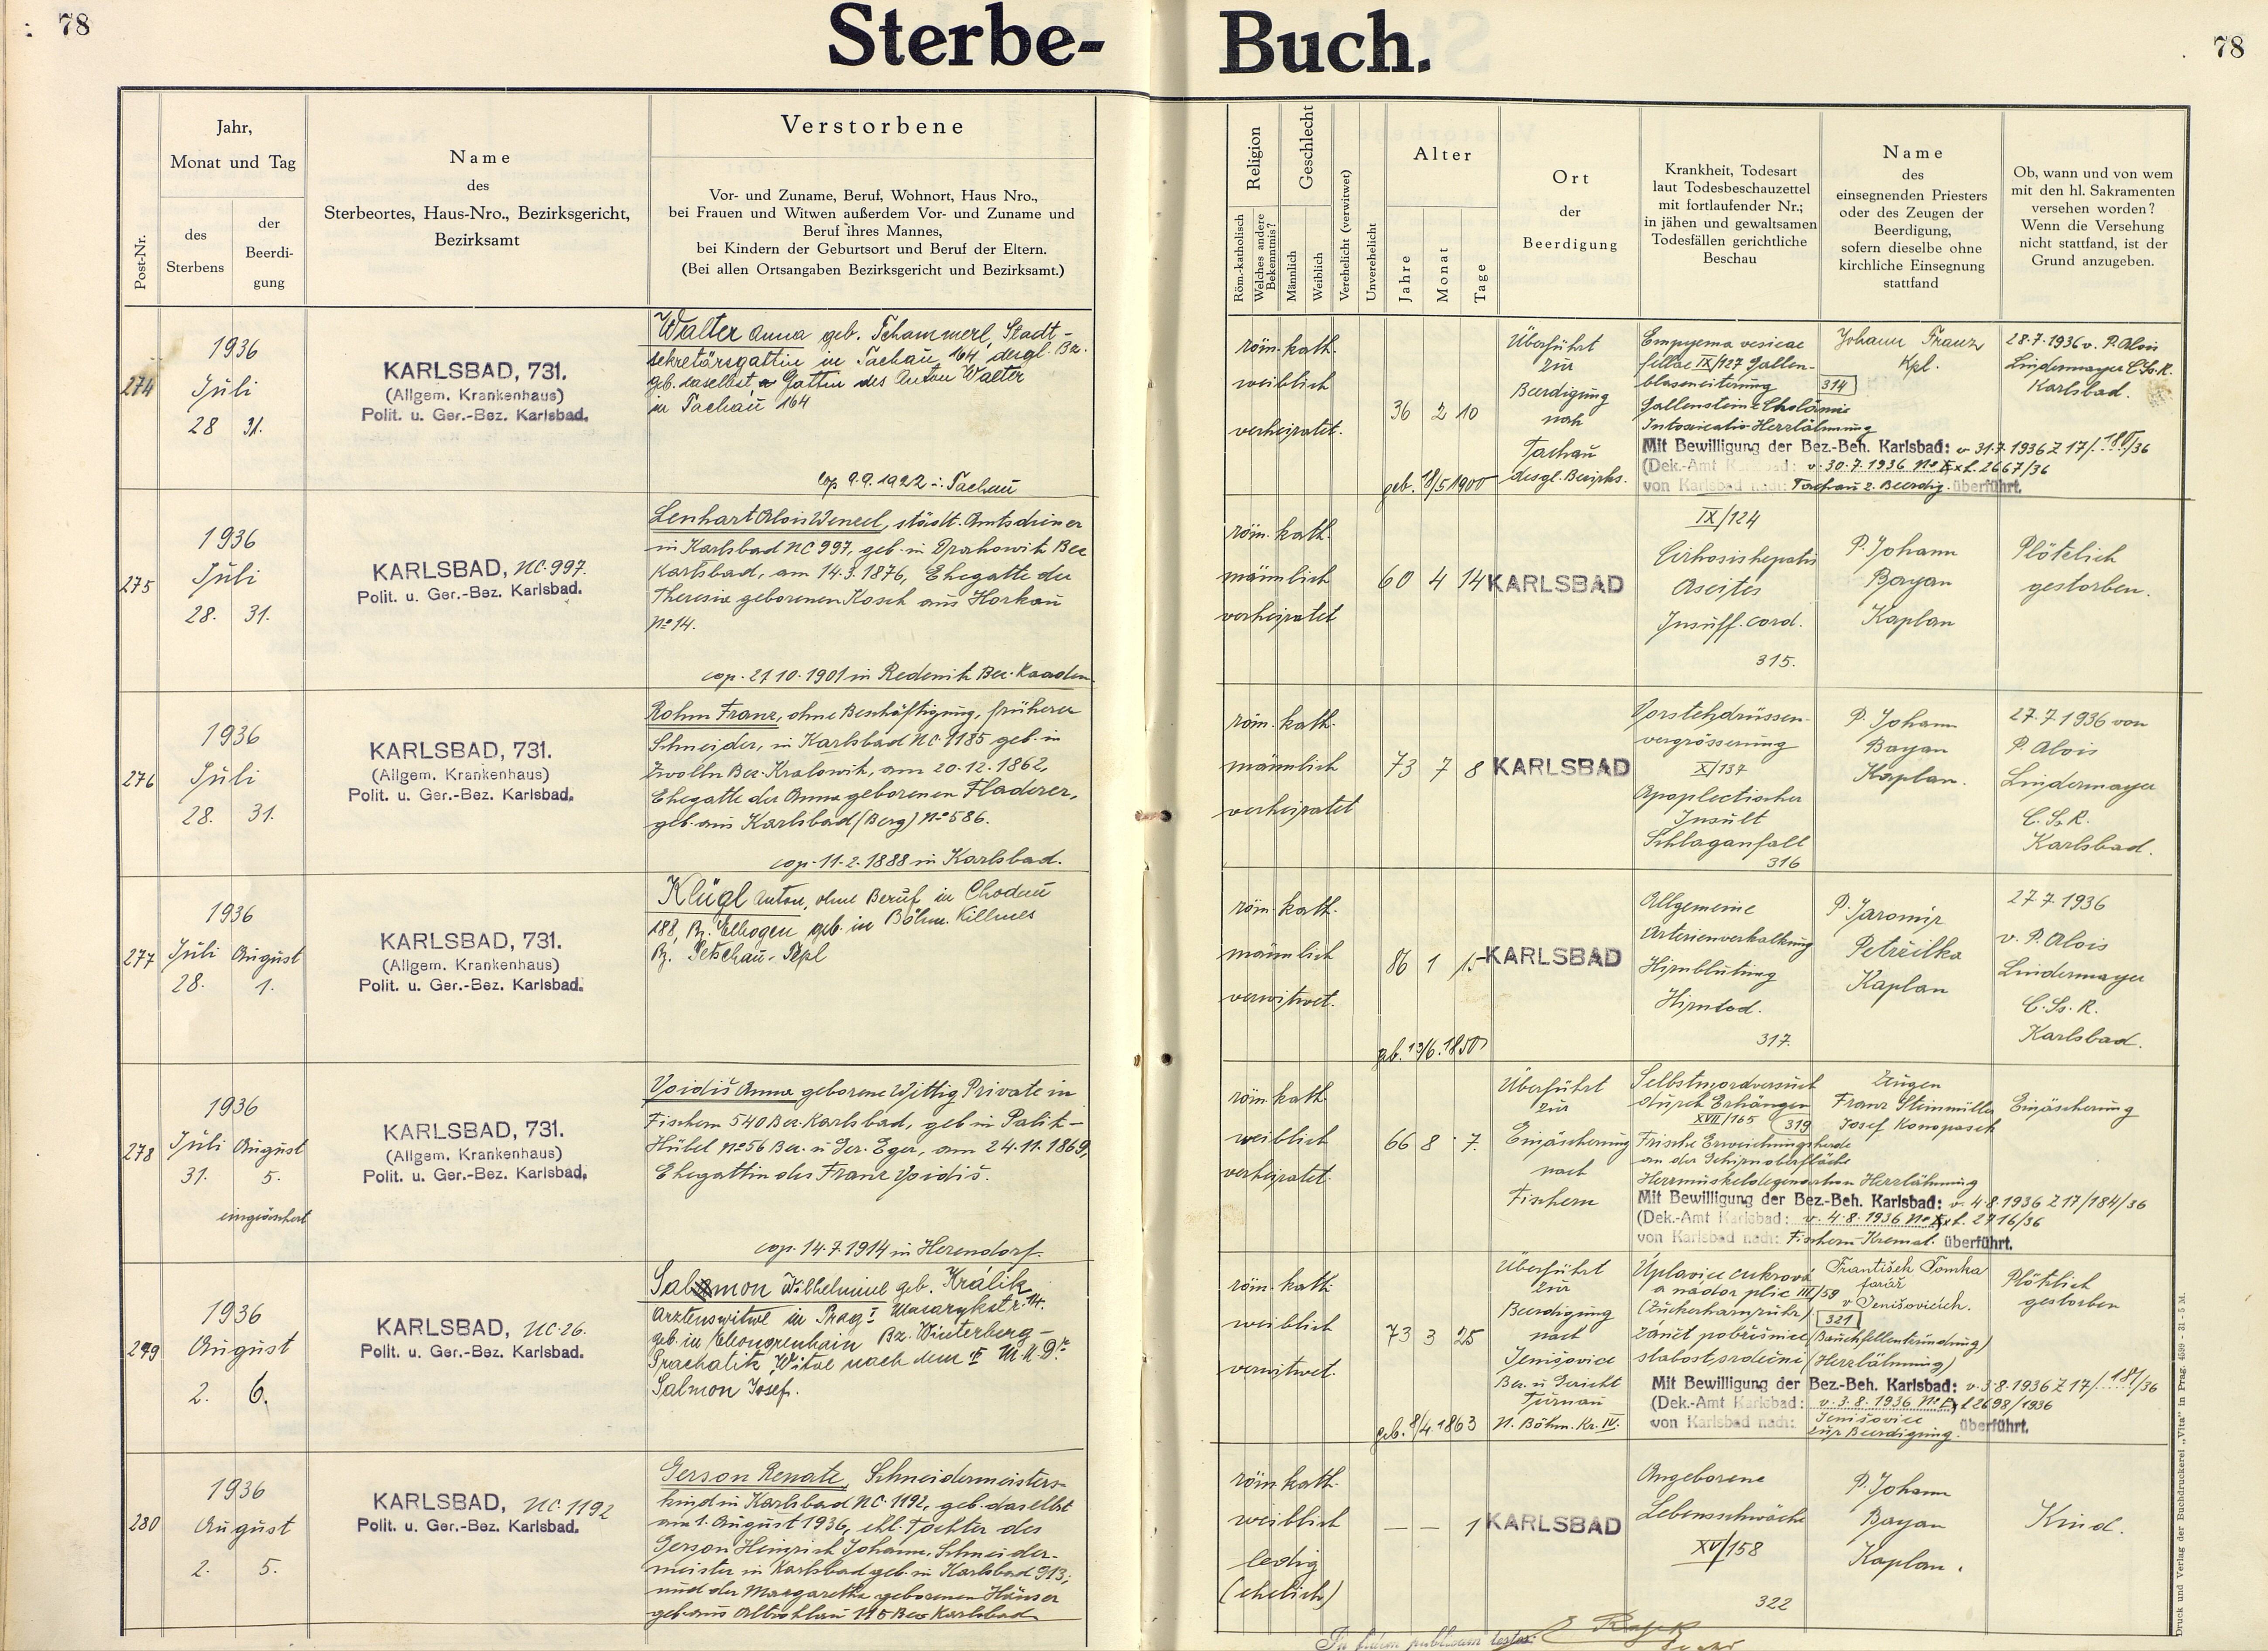 78
Sterbe-
Buch.
78
Post-Nr.
Jahr,
Monat und Tag
des
Sterbens
der
Beerdi-
gung
Name
des
Sterbeortes, Haus-Nro., Bezirksgericht,
Bezirksamt
Verstorbene
Vor- und Zuname, Beruf, Wohnort, Haus Nro.,
bei Frauen und Witwen außerdem Vor- und Zuname und
Beruf ihres Mannes,
bei Kindern der Geburtsort und Beruf der Eltern.
(Bei allen Ortsangaben Bezirksgericht und Bezirksamt.)
Religion
Röm.-katholisch
Welches andere
Bekenntnis?
Geschlecht
Männlich
Weiblich
Verehelicht (verwitwet)
Unverehelicht
Alter
Jahre
Monat
Tage
Ort
der
Beerdigung
Krankheit, Todesart
laut Todesbeschauzettel
mit fortlaufender Nr.;
in jähen und gewaltsamen
Todesfällen gerichtliche
Beschau
Name
des
einsegnenden Priesters
oder des Zeugen der
Beerdigung,
sofern dieselbe ohne
kirchliche Einsegnung
stattfand
Ob, wann und von wem
mit den hl. Sakramenten
versehen worden?
Wenn die Versehung
nicht stattfand, ist der
Grund anzugeben.
274
1936
Juli
28 31.
KARLSBAD, 731.
(Allgem. Krankenhaus)
Polit. u. Ger.-Bez. Karlsbad.
Walter Anna geb. Schammerl, Stadt-
sekretärsgattin in Tachau 164, desgl. Bz.
geb. daselbst Gattin des Anton Walter
in Tachau 164
cop 9.9.1922 in Tachau
röm. kath.
weiblich
verheiratet.
36 2 10
geb. 18/5 1900
Überführt
zur
Beerdigung
nach
Tachau
desgl. Bezirks.
Empyema vesicae
felleae IX/127 Gallen-
blaseneiterung 314
Gallensteine Cholämie
Intoxicatio Herzlähmung
Mit Bewilligung der Bez.-Beh. Karlsbad: v. 31.7.1936 Z 17/180/36
(Dek.-Amt Karlsbad: v. 30.7.1936 No Ex. f. 2667/36
von Karlsbad nach: Tachau z. Beerdig. überführt.
Johann Franz
Kpl.
28.7.1936 v. P. Alois
Lindermayer C.Ss.R.
Karlsbad.
275
1936
Juli
28. 31.
KARLSBAD, NC. 997.
Polit. u. Ger.-Bez. Karlsbad.
Lenhart Alois Wenzel, städt. Amtsdiener
in Karlsbad NC 997, geb. in Drahowitz Bez
Karlsbad, am 14.3.1876, Ehegatte der
Theresia geborenen Kosch aus Horkau
No 14.
cop. 21.10.1901 in Redenitz Bez. Kaaden.
röm. kath.
männlich
verheiratet
60 4 14
KARLSBAD
IX/124
Cirhosis hepatis
Ascites
Insuff. cord.
315.
P. Johann
Bayan
Kaplan
Plötzlich
gestorben.
276
1936
Juli
28. 31.
KARLSBAD, 731.
(Allgem. Krankenhaus)
Polit. u. Ger.-Bez. Karlsbad.
Rohm Franz, ohne Beschäftigung, früherer
Schneider, in Karlsbad NC. 1185 geb. in
Zwolln Bez. Kralowitz, am 20.12.1862,
Ehegatte der Anna geborenen Fladerer,
geb. aus Karlsbad (Berg) No 586.
cop. 11.2.1888 in Karlsbad.
röm. kath.
männlich
verheiratet
73 7 8
KARLSBAD
Vorstehdrüssen-
vergrösserung
X/137
Apoplectischer
Insult
Schlaganfall
316
P. Johann
Bayan
Kaplan.
27.7.1936 von
P. Alois
Lindermayer
C.Ss.R.
Karlsbad.
277
1936
Juli August
28. 1.
KARLSBAD, 731.
(Allgem. Krankenhaus)
Polit. u. Ger.-Bez. Karlsbad.
Klügl Anton, ohne Beruf in Chodau
188, Bz. Elbogen geb. in Böhm. Killmes
Bz. Petschau-Tepl
röm. kath.
männlich
verwitwet.
86 1 15
geb. 13/6.1850
KARLSBAD
Allgemeine
Arterienverkalkung
Hirnblutung
Hirntod.
317.
P. Jaromir
Petržilka
Kaplan
27.7.1936
v. P. Alois
Lindermayer
C.Ss.R.
Karlsbad.
278
1936
Juli August
31. 5.
eingeäschert
KARLSBAD, 731.
(Allgem. Krankenhaus)
Polit. u. Ger.-Bez. Karlsbad.
Voidiš Anna geborene Wittig Private in
Fischern 540 Bez. Karlsbad, geb in Palit-
Hübel No 56 Bez. u Ger. Eger, am 24.11.1869,
Ehegattin des Franz Voidiš.
cop. 14.7.1914 in Herendorf.
röm. kath.
weiblich
verheiratet.
66 8 7.
Überführt
zur
Einjäscherung
nach
Fischern
Selbstmordversuch
durch Erhängen
XVII/165 319
Frische Erweichungsherde
an der Gehirnoberfläche
Herzmuskeldegeneration Herzlähmung
Mit Bewilligung der Bez.-Beh. Karlsbad: v. 4.8.1936 Z 17/184/36
(Dek.-Amt Karlsbad: v. 4.8.1936 No Ex f. 2716/36
von Karlsbad nach: Fischern-Kremat. überführt.
Zeugen
Franz Steinmüller
Josef Konopasek
Einjäscherung
279
1936
August
2. 6.
KARLSBAD, NC. 26.
Polit. u. Ger.-Bez. Karlsbad.
Salomon Wilhelmine geb. Králik
Arztenswitwe in Prag I Masarykstr. 14.
geb. in Eleonorenhain Bz. Winterberg-
Prachatitz Witwe nach dem M.U.Dr.
Salmon Josef.
röm. kath.
weiblich
verwitwet.
73 3 25
geb. 8/4.1863
Überführt
zur
Beerdigung
nach
Jenišovice
Bez. u Gericht
Turnau
N. Böhm. Kr. IV.
Úplavice cukrová
a nádor plic III/59
(Zuckerharnruhr) 321
zánět pobřišnice (Bauchfellentzündung)
slabost srdeční (Herzlähmung)
Mit Bewilligung der Bez.-Beh. Karlsbad: v. 3.8.1936 Z 17/181/36
(Dek.-Amt Karlsbad: v. 3.8.1936 No Ex f 2698/1936
von Karlsbad nach: Jenišovice
zur Beerdigung. überführt.
František Tomka
farář
v Jenišovicích.
Plötzlich
gestorben
280
1936
August
2. 5.
KARLSBAD, NC. 1192
Polit. u. Ger.-Bez. Karlsbad.
Gerson Renate, Schneidermeisters-
kind in Karlsbad NC. 1192, geb. daselbst
am 1. August 1936, ehl. Tochter des
Gerson Heinrich Johann, Schneider-
meister in Karlsbad geb. in Karlsbad 913;
und der Margaretha geborenen Häuser
geb. aus Altrohlau 115 Bez Karlsbad
röm. kath.
weiblich
ledig
(ehelich)
— — 1
KARLSBAD
Angeborene
Lebensschwäche
XV/158
322
P. Johann
Bayan
Kaplan.
Kind.
Druck und Verlag der Buchdruckerei „Vita" in Prag. 4599 - 31 - 5 M.